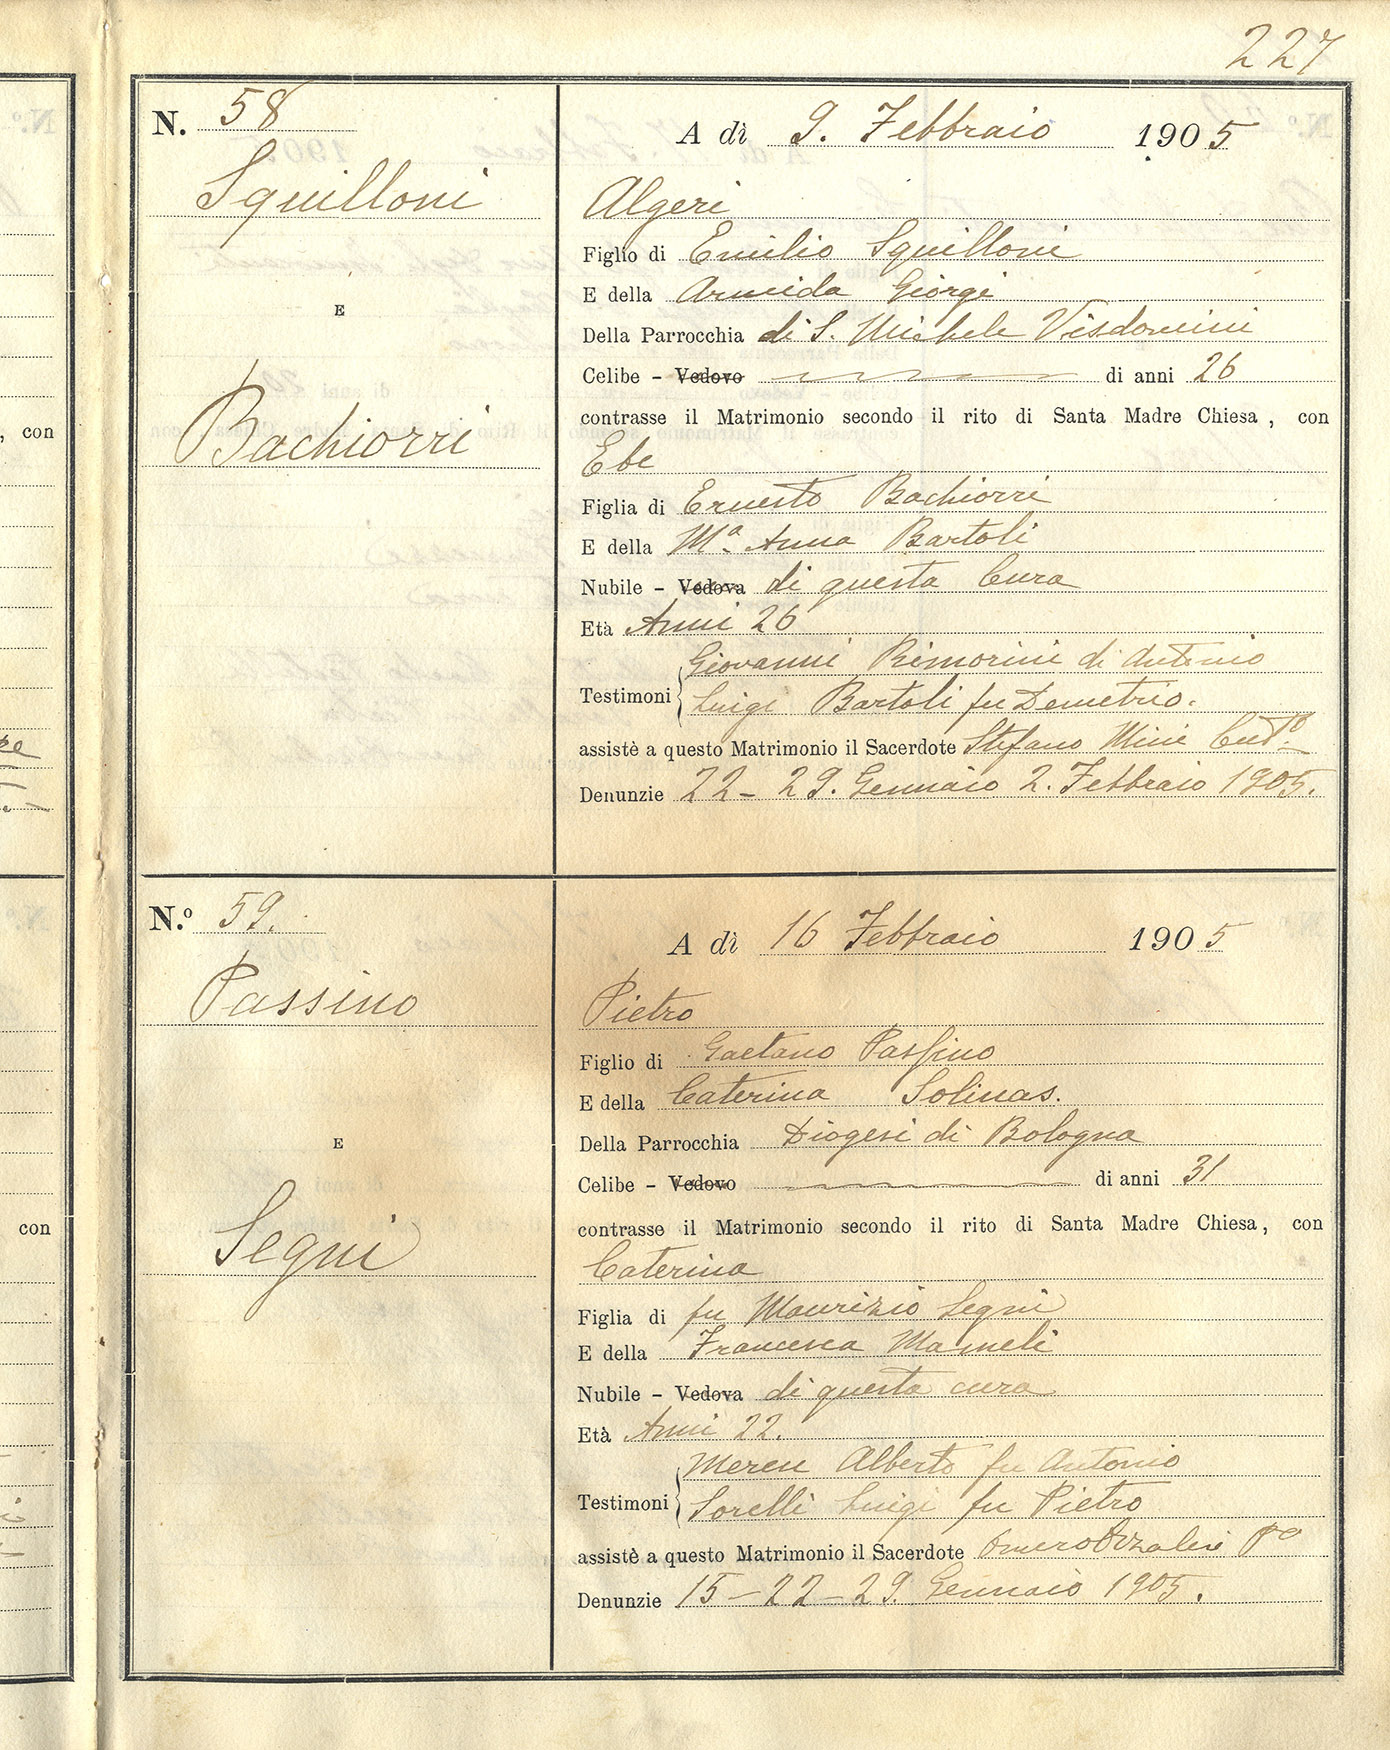 227
N. 58
Squilloni
E
Bachiorri
A dì 9. Febbraio 1905
Algeri
Figlio di Emilio Squilloni
E della Armida Giorgi
Della Parrocchia di S. Michele Visdomini
Celibe - Vedovo di anni 26
contrasse il Matrimonio secondo il rito di Santa Madre Chiesa, con
Ebe
Figlia di Ernesto Bachiorri
E della Mª. Anna Bartoli
Nubile - Vedova di questa Cura
Età Anni 26
Giovanni Rimorini di Antonio
Testimoni
Luigi Bartoli fu Demetrio.
assistè a questo Matrimonio il Sacerdote Stefano Mini
Denunzie 22 - 29. Gennaio 2. Febbraio 1905.
N.º 59.
Passino
E
Segni
A dì 16 Febbraio 1905
Pietro
Figlio di Gaetano Passino
E della Caterina Solinas.
Della Parrocchia Diogesi di Bologna
Celibe - Vedovo di anni 31
contrasse il Matrimonio secondo il rito di Santa Madre Chiesa, con
Caterina
Figlia di fu Maurizio Segni
E della Francesca Mameli
Nubile - Vedova di questa cura
Età Anni 22.
Mereu Alberto fu Antonio
Testimoni
Sorelli Luigi fu Pietro
assistè a questo Matrimonio il Sacerdote
Denunzie 15 - 22 - 29. Gennaio 1905.
, con
con